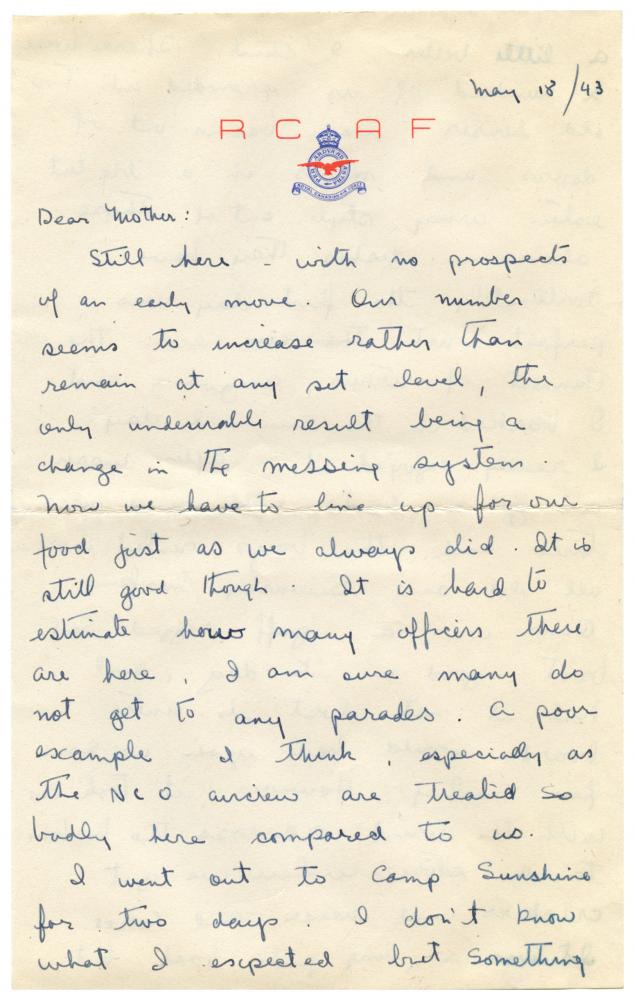 May 18/43
R C A F
Dear Mother:
Still here - with no prospects
of an early move Our number
seems to increase rather than
remain at any set level, the
only undesirable result being a
change in the messing system.
Now we have to line up for our
food just as we always did. It is
still good though. It is hard to
estimate how many officers there
are here, I am sure many do
not get to any parades. A poor
example I think, especially as
the NCO aircrew are treated so
badly here compared to us.
I went out to Camp Sunshine
for two days. I don't know
what I expected but something